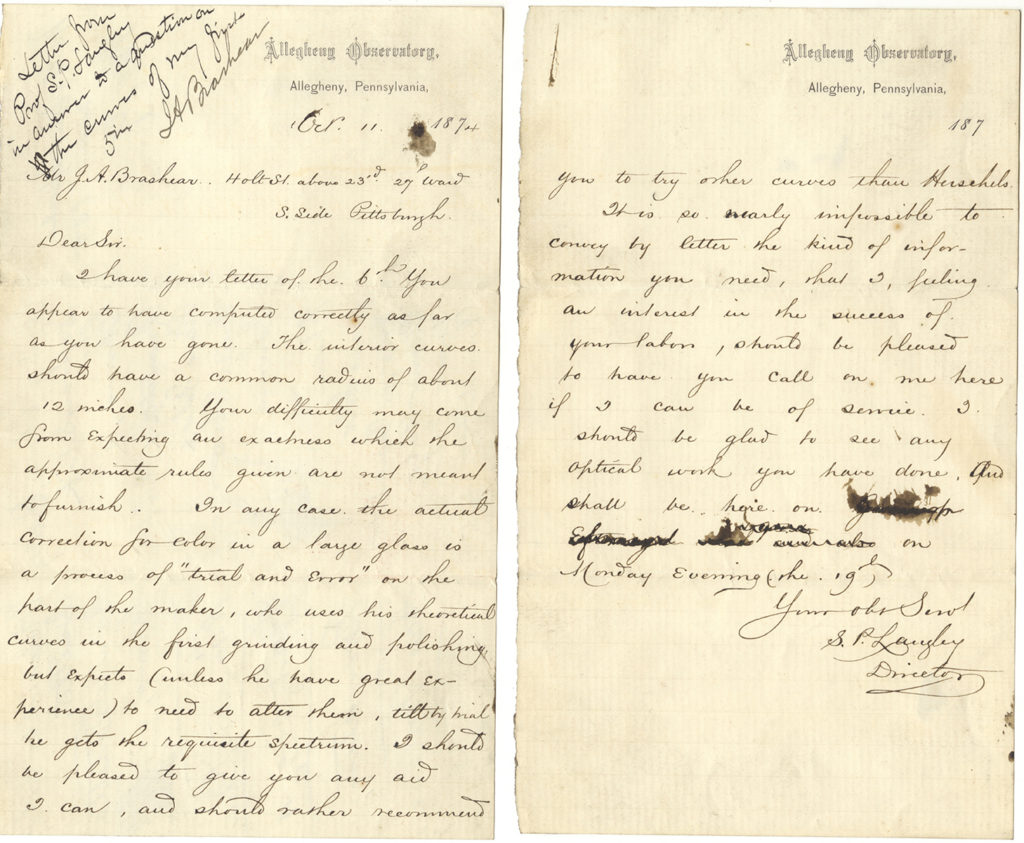 Letter from
Prof S.P. Langley
in answer to a question on
the curves of my first
5 in
J A Brashear
Allegheny Observatory,
Allegheny, Pennsylvania,
Oct. 11 1874
Mr J.A. Brashear. Holt St. above 23d 27th Ward
S. Side Pittsburgh.
Dear Sir.
I have your letter of the 6th. You
appear to have computed correctly as far
as you have gone. The interior curves
should have a common radius of about
12 inches. Your difficulty may come
from expecting an exactness which the
approximate rules given are not meant
to furnish. In any case the actual
correction for color in a large glass is
a process of "trial and Error" on the
part of the maker, who uses his theoretical
curves in the first grinding and polishing,
but expects (unless he have great ex-
perience) to need to alter them, till by trial
he gets the requisite spectrum. I should
be pleased to give you any aid
I can, and should rather recommend
Allegheny Observatory,
Allegheny, Pennsylvania,
187
you to try other curves than Herschels.
It is so nearly impossible to
convey by letter the kind of infor-
mation you need, that I, feeling
an interest in the success of
your labors, should be pleased
to have you call on me here
if I can be of service. I
should be glad to see any
optical work you have done, and
shall be here on
on
Monday Evening (the 19th)
Your obt Servt
S. P. Langley
Director